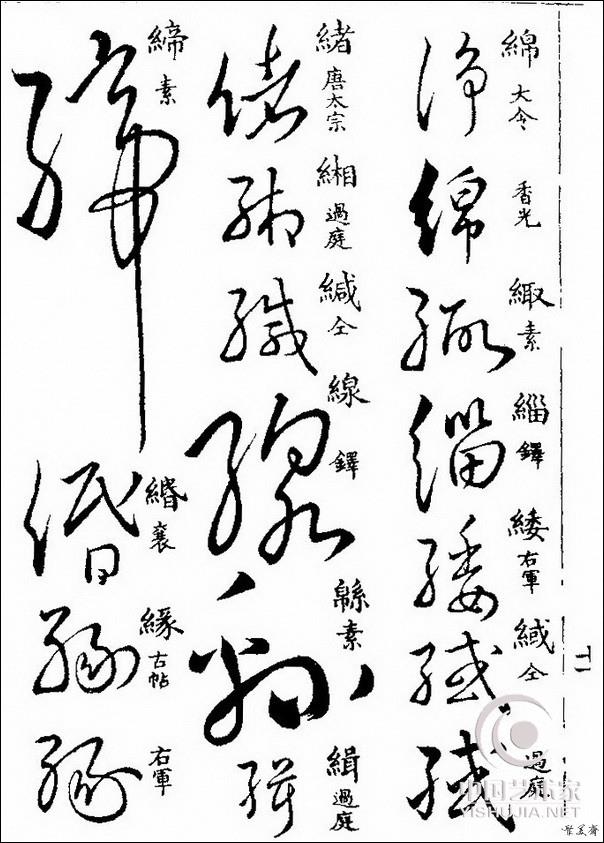 綿 大令
香光
緅 素
緇 鐸
緌 右軍
緎 仝
過庭
緒 唐太宗
緗 過庭
緘 仝
線 鐸
緜 素
緝 過庭
締 素
緡 襄
緣 古帖
右軍
中国艺术家
YISHUJIA.NET